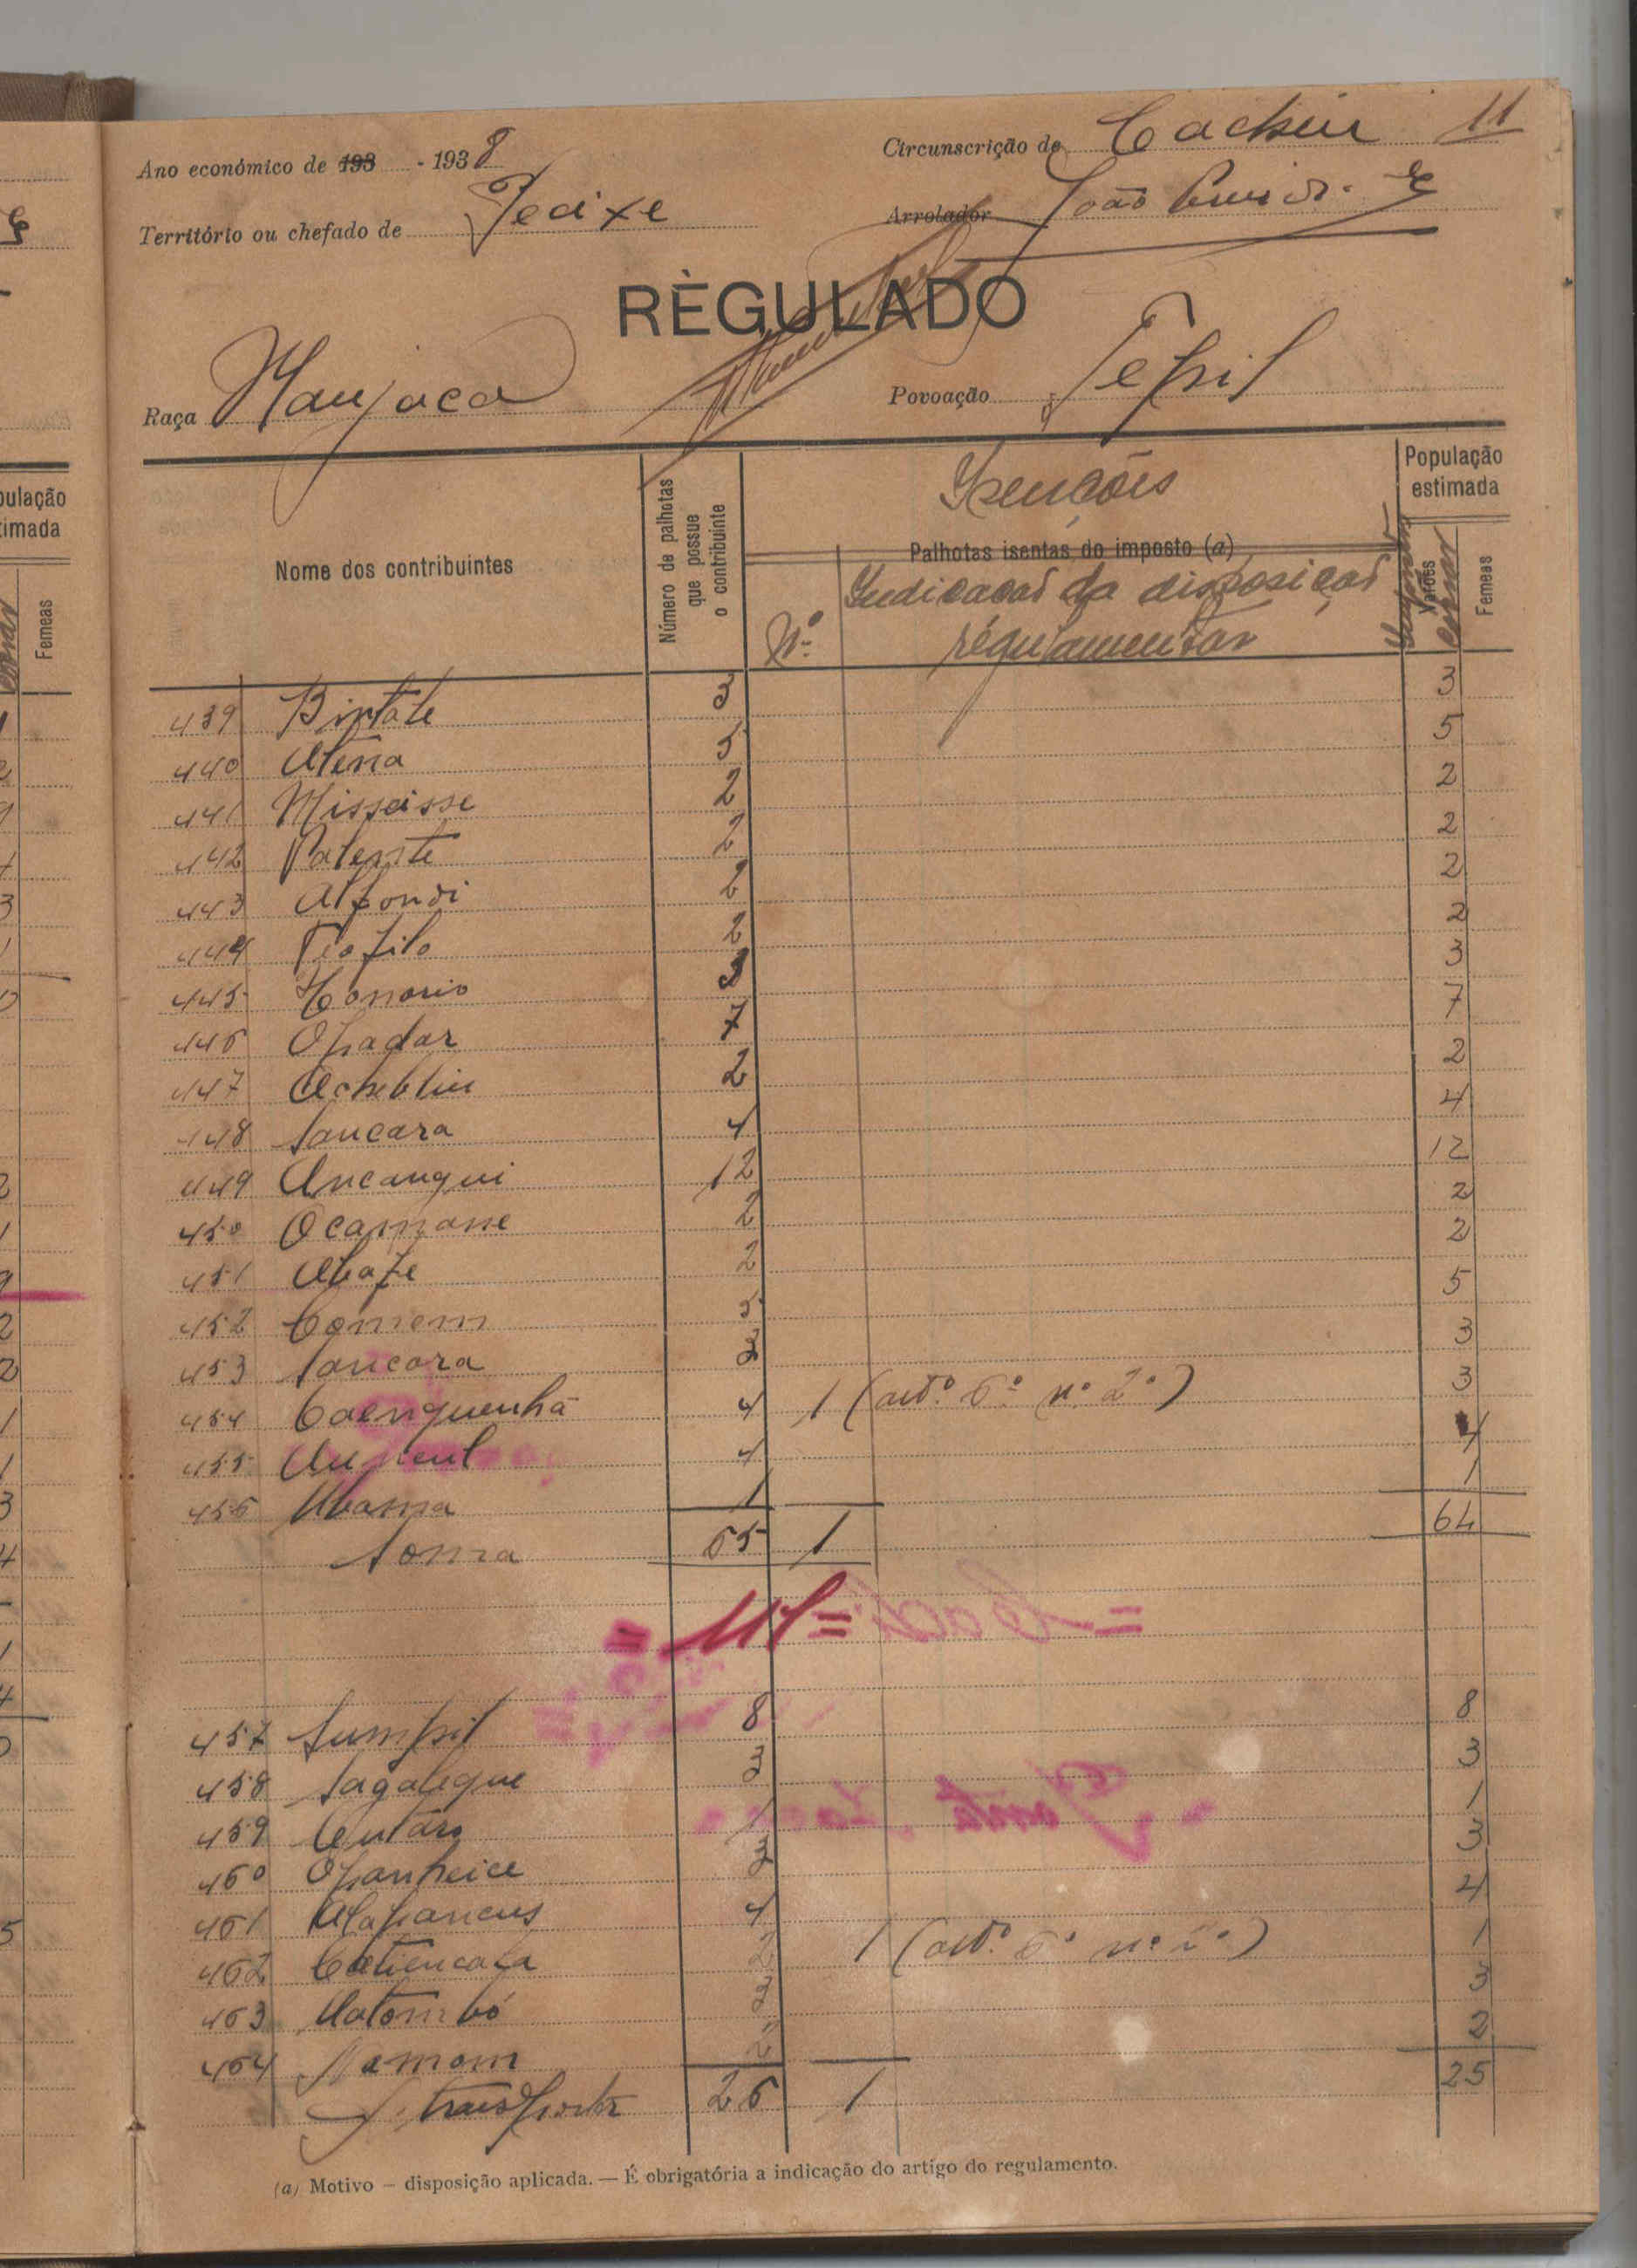 Ano económico de 193 - 1938
Circunscrição de Cacheu 11
Território ou chefado de Jeaixe
Arrolador João
RÈGULADO
Raça Manjaca
Povoação Tepil
Nome dos contribuintes
Número de palhotas que possue o contribuinte
Isenções
Palhotas isentas do imposto (a)
Nº
Indicação da disposição
regulamentar
População estimada
Varões
Femeas
439 Bintate 3 3
440 Atena 5 5
441 Misseisse 2 2
442 Valente 2 2
443 Alfondi 2 2
444 Tiofilo 2 2
445 Honorio 3 3
446 Opadar 7 7
447 Acheblin 2 2
448 Sancara 4 4
449 Ancangui 12 12
450 Ocampane 2 2
451 Abafe 2 2
452 Comem 5 5
453 Sancora 3 3
454 Caenguenhã 4 1 (artº 6º nº 2º) 3
455 4 4
456 Ubama 1 1
Soma 65 1 64
457 Sumpil 8 8
458 Sagaleque 3 3
459 Cutáro 1 1
460 Opanheice 3 3
461 4 4
462 2 1 (artº 6º nº 2º) 1
463 Matombó 3 3
464 Namom 2 2
A transportar 26 1 25
(a) Motivo — disposição aplicada. — É obrigatória a indicação do artigo do regulamento.
pulação
timada
Femeas